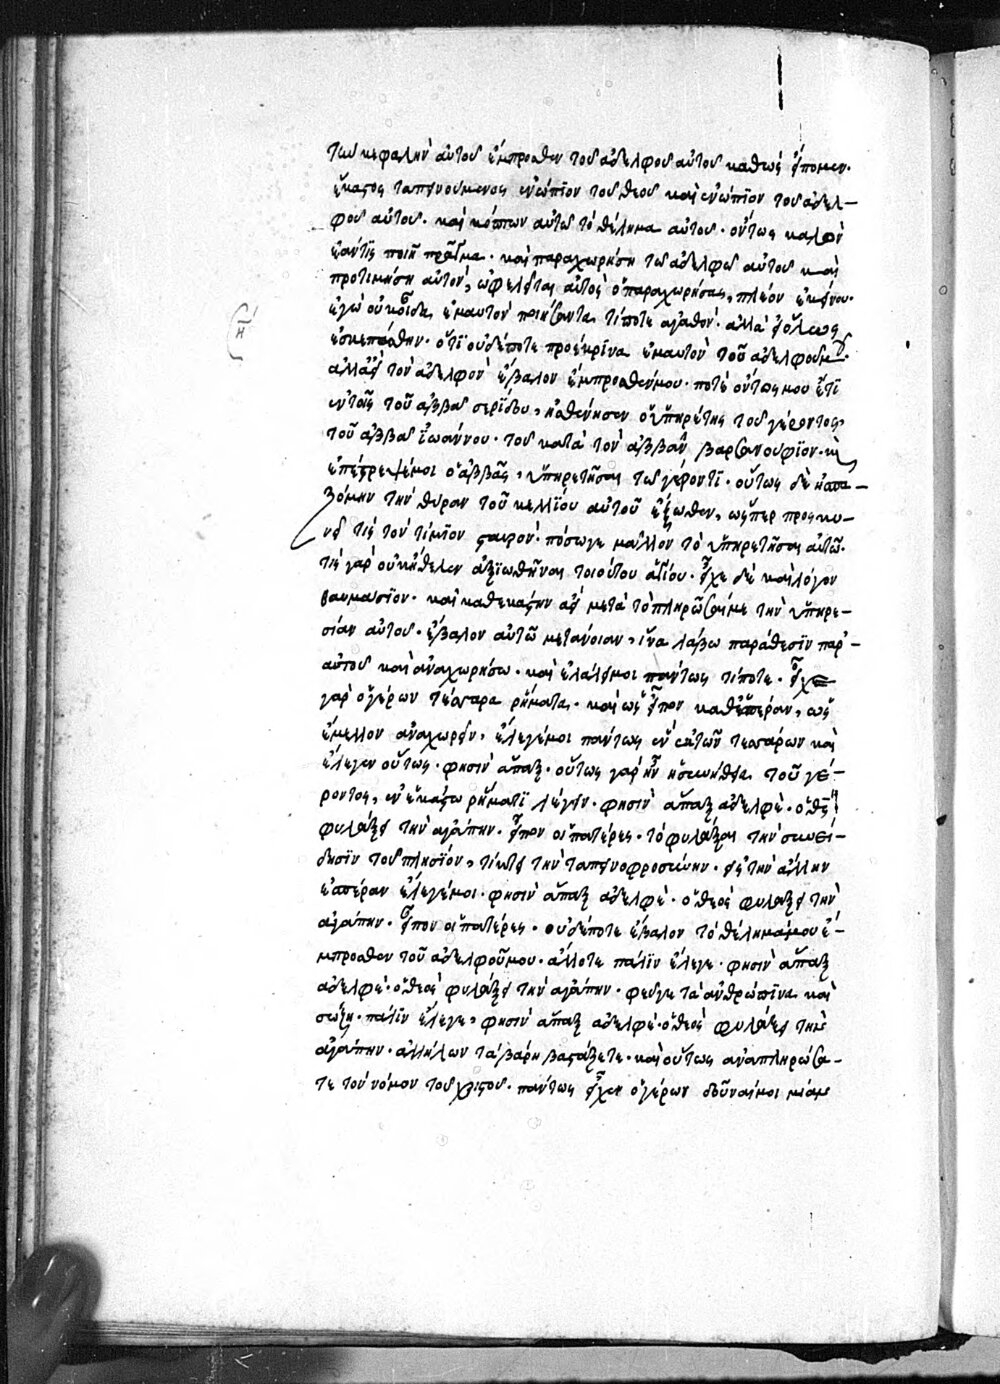 των κεφαλὴν αὐτοῦ ἔμπροσθεν τοῦ ἀδελφοῦ αὐτοῦ καθὼς εἴπομεν·
ἕκαστος ταπεινούμενος ἐνώπϊον τοῦ θεοῦ καὶ ἐνώπϊον τοῦ ἀδελ-
φοῦ αὐτοῦ· καὶ κόπτων αὐτῶ τὸ θέλημα αὐτοῦ· οὕτως καλὸν
ἐάντϊς ποιῆ πρᾶγμα· καὶ παραχωρήση τῶ ἀδελφῶ αὐτοῦ καὶ
προτιμήση αὐτὸν, ὠφελεῖται αὐτὸς ὁ παραχωρήσας, πλέον ἐκείνου·
ἐγὼ οὐκ οἶδα ἐμαυτὸν ποιήσαντα τίποτε ἀγαθὸν· ἀλλὰ εἰ ὅλως
ἐσκεπάσθην· ὅτϊ οὐδέποτε προέκρϊνα ἐμαυτὸν τοῦ ἀδελφοῦ μου·
ἀλλ' ἀεὶ τὸν ἀδελφὸν ἔβαλον ἔμπροσθέν μου· ποτὲ ὄντως μου ἔτϊ
ἐν τοῖς τοῦ ἀββᾶ σερίδου, ἠσθένησεν ὁ ὑπηρέτης τοῦ γέροντος
τοῦ ἀββᾶ ἰωάννου· τοῦ κατὰ τὸν ἀββᾶν βαρσανουφϊον· καὶ
ἐπέτρεψέμοι ὁ ἀββᾶς, ὑπηρετῆσαι τῶ γέροντϊ· οὕτως δὲ ἠσπα-
ζόμην τὴν θύραν τοῦ κελλΐου αὐτοῦ ἔξωθεν, ὥσπερ προσκυ-
νεῖ τὶς τὸν τίμϊον σταυρὸν· πόσωγε μᾶλλον τὸ ὑπηρετῆσαι αὐτῶ·
τίς γὰρ οὐκ ἤθελεν ἀξϊωθῆναι τοιούτου ἁγίου· εἶχε δὲ καὶ λόγον
θαυμάσϊον· καὶ καθεκάστην ἀεὶ μετὰ τὸ πληρῶσαί με τὴν ὑπηρε-
σίαν αὐτοῦ· ἔβαλον αὐτῶ μετάνοιαν, ἵνα λάβω παράθεσϊν παρ'
αὐτοῦ καὶ ἀναχωρήσω· καὶ ἐλάλειμοι πάντως τίποτε· εἶχε
γὰρ ὁ γέρων τέσσαρα ῥήματα· καὶ ὡς εἶπον καθ' ἑσπέραν, ὡς
ἔμελλον ἀναχωρεῖν, ἔλεγέμοι πάντως ἓν ἐκ τῶν τεσσάρων καὶ
ἔλεγεν οὕτως· φησὶν ἅπαξ· οὕτως γὰρ ἦν ἡ συνήθεια τοῦ γέ-
ροντος, ἐν ἑκάστω ῥήματϊ λέγειν· φησὶν ἅπαξ ἀδελφὲ· ὁ θεὸς
φυλάξει τὴν ἀγάπην· εἶπον οἱ πατέρες· τὸ φυλάξαι τὴν συνεί-
δησϊν τοῦ πλησΐον, τίκτει τὴν ταπεινοφροσύνην· εἰς τὴν ἄλλην
ἑσπέραν ἔλεγέμοι· φησὶν ἅπαξ ἀδελφὲ· ὁ θεὸς φυλάξει τὴν
ἀγάπην· εἶπον οἱ πατέρες· οὐδέποτε ἔβαλον τὸ θέλημάμου ἔ-
μπροσθεν τοῦ ἀδελφοῦμου· ἄλλοτε πάλϊν ἔλεγε· φησὶν ἅπαξ
ἀδελφὲ· ὁ θεὸς φυλάξει τὴν ἀγάπην· φεῦγε τὰ ἀνθρώπϊνα καὶ
σώζη· πάλϊν ἔλεγε, φησὶν ἅπαξ ἀδελφὲ· ὁ θεὸς φυλάξει τὴν
ἀγάπην· ἀλλήλων τὰ βάρη βαστάζετε· καὶ οὕτως ἀναπληρώσα-
τε τὸν νόμον τοῦ χριστοῦ· πάντως εἶχεν ὁ γέρων δοῦναίμοι μίαν